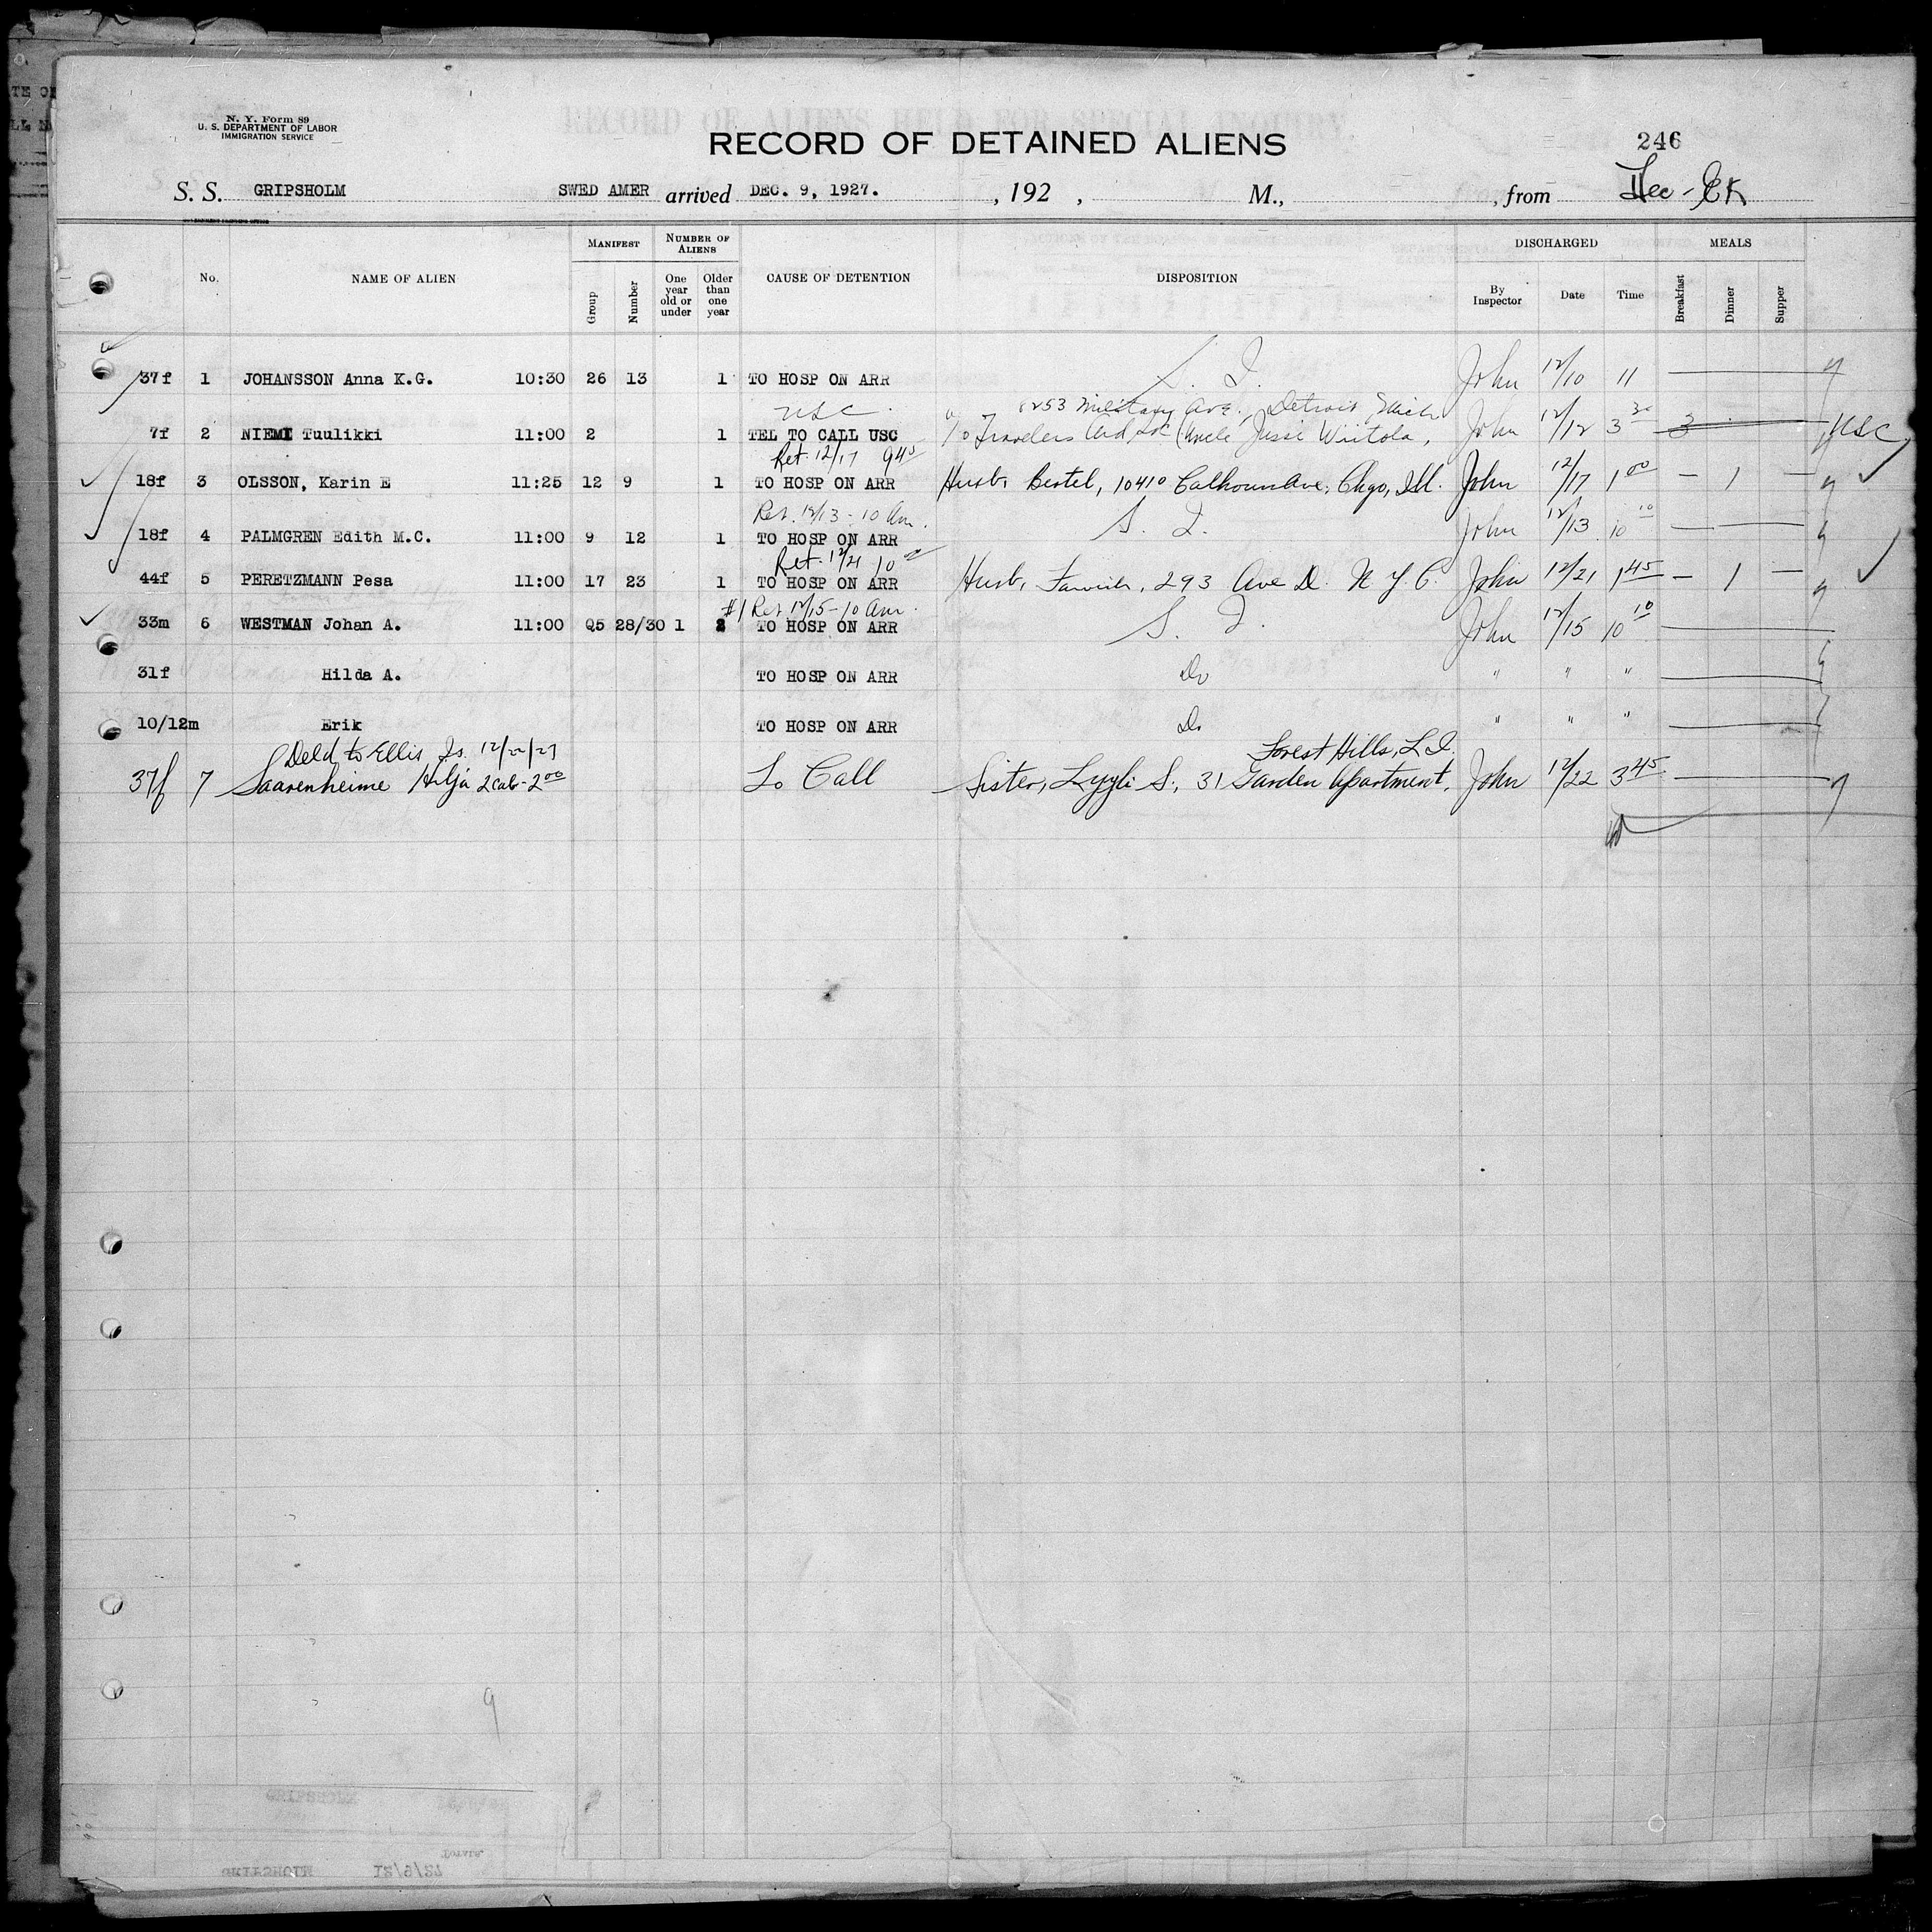 N. Y. Form 89
U. S. DEPARTMENT OF LABOR
IMMIGRATION SERVICE
RECORD OF ALIENS HELD FOR SPECIAL INQUIRY
RECORD OF DETAINED ALIENS
246
S. S. GRIPSHOLM SWED AMER arrived DEC. 9, 1927. , 192 , M., , from
No. NAME OF ALIEN MANIFEST NUMBER OF ALIENS CAUSE OF DETENTION DISPOSITION DISCHARGED MEALS
Group Number One year old or under Older than one year By Inspector Date Time Breakfast Dinner Supper
37f 1 JOHANSSON Anna K.G. 10:30 26 13 1 TO HOSP ON ARR S. I. John 12/10 11
USC. 1253 Military Ave., Detroit Mich
7f 2 NIEMI Tuulikki 11:00 2 1 TEL TO CALL USC c/o Travelers Aid Soc (Uncle Jussi Wiitola, John 12/12 3 30 3 USC
Ret. 12/17 9 45
18f 3 OLSSON, Karin E 11:25 12 9 1 TO HOSP ON ARR Husb. Bertel, 10410 Calhoun Ave, Chgo, Ill. John 12/17 1 00 — 1 —
Ret. 12/13 - 10 Am.
18f 4 PALMGREN Edith M.C. 11:00 9 12 1 TO HOSP ON ARR S. I. John 12/13 10 10
Ret. 12/21 10
44f 5 PERETZMANN Pesa 11:00 17 23 1 TO HOSP ON ARR Husb, 293 Ave D. N Y C. John 12/21 1 45 — 1 —
#1 Ret 12/15 - 10 Am.
33m 6 WESTMAN Johan A. 11:00 Q5 28/30 1 2 TO HOSP ON ARR S. I. John 12/15 10 10
31f Hilda A. TO HOSP ON ARR Do " " "
10/12m Erik TO HOSP ON ARR Do " " "
Deld to Ellis Is. 12/22/27 Forest Hills, L I.
37f 7 Saarenheime Hilja 2 cab - 2 00 To Call Sister, Lyyli S., 31 Garden Apartment, John 12/22 3 45
9
GRIPSHOLM
Totals
GRIPSHOLM 12/9/27